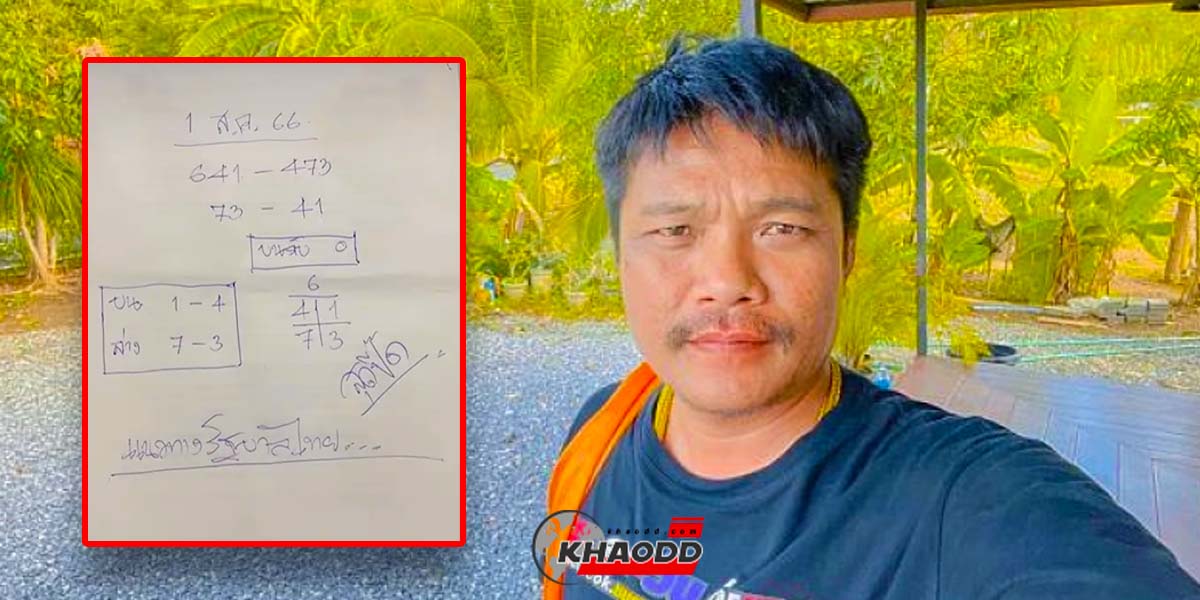 1 ส.ค. 66.
641 - 473
73 - 41
0
6
บน 1 - 4
4 1
ล่าง 7 - 3
7 3
แนวทางรัฐบาลไทย...
khaodd.com
KHAODD